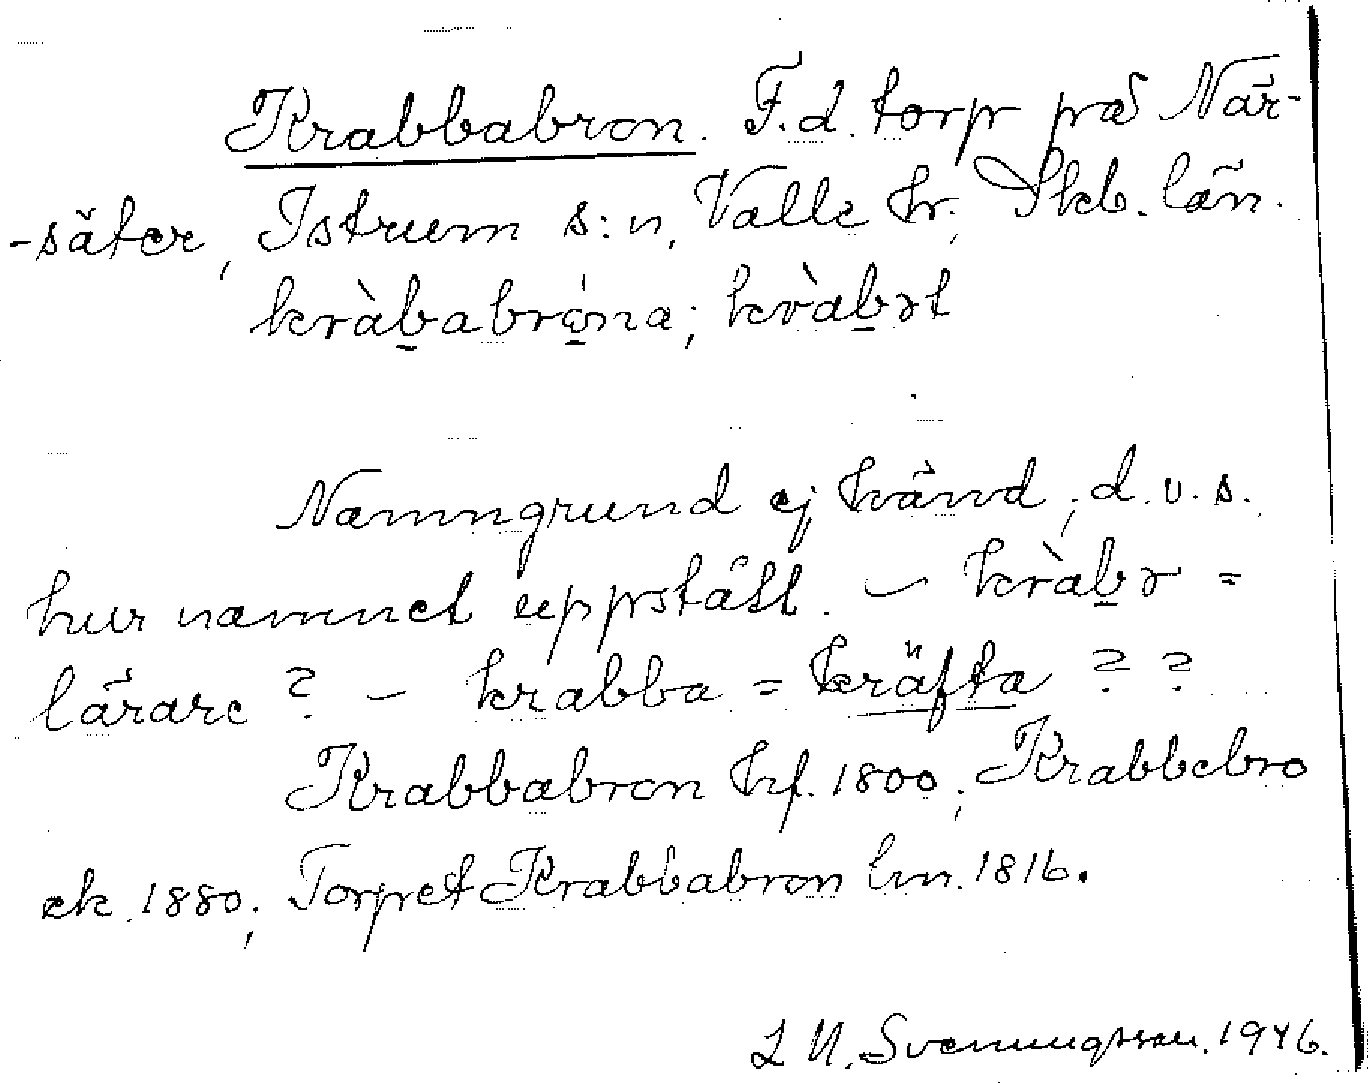 Krabbabron. F.d. torp på När-
-säter, Istrum s:n, Valle hr., Skb. län.
kràbabróna; kràbət
Namngrund ej känd, d.v.s.
hur namnet uppstått. – kràbə =
lärare ? – krabba = kräfta ? ?
Krabbabron hf. 1800; Krabbebro
ek. 1880; Torpet Krabbabron lm. 1816.
L N. Svenungsson. 1946.